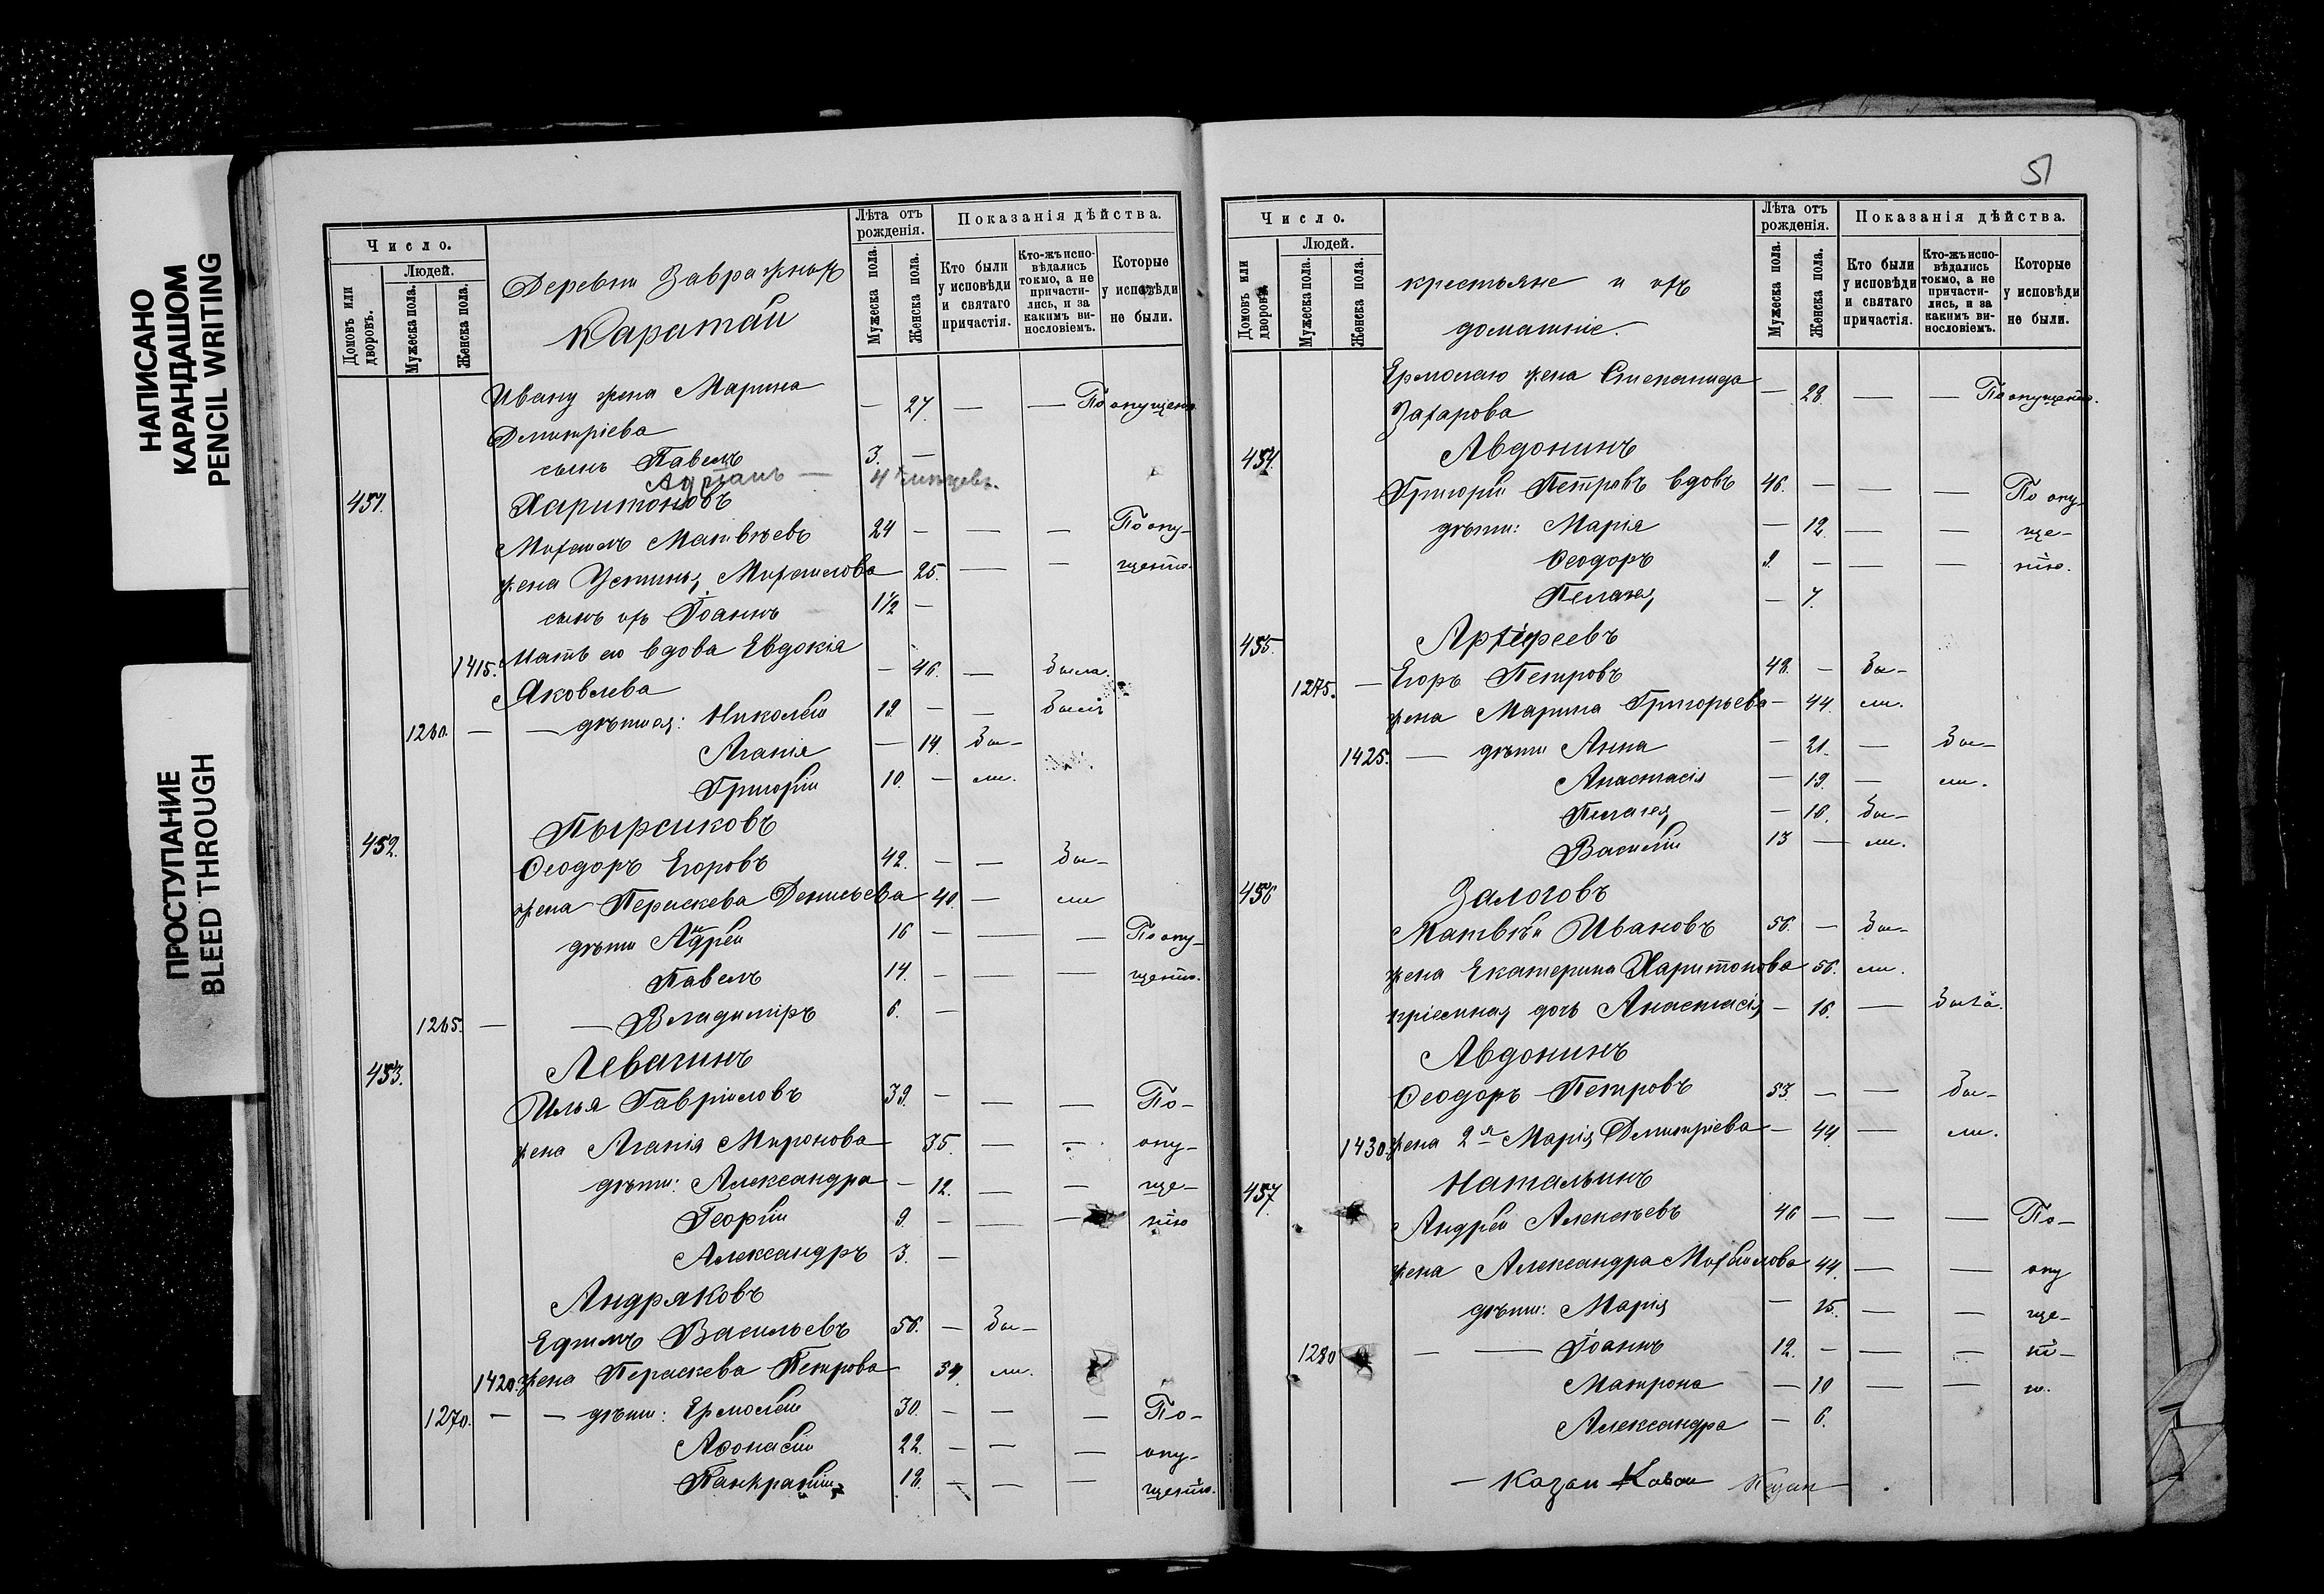 НАПИСАНО
КАРАНДАШОМ
PENCIL WRITING
ПРОСТУПАНИЕ
BLEED THROUGH
Число.
Домовъ или дворовъ.
Людей.
Мужеска пола.
Женска пола.
Деревни Завражной
Каратай
Лѣта отъ рожденія.
Мужеска пола.
Женска пола.
Показанія дѣйства.
Кто были у исповѣди и святаго причастія.
Кто-жъ исповѣдались токмо, а не причастились, и за какимъ винословіемъ.
Которые у исповѣди не были.
Ивану жена Марина
Дмитріева — 27. — — По опущенію
сынъ Павелъ 3. —
Адріанъ — 4
451. Харитоновъ
Михаилъ Матвѣевъ 24 — — — По опу-
жена Устинья Михаилова 25. — — щенію.
сынъ их Іоаннъ 1½ —
1415. Мать его вдова Евдокія
Яковлева — 46. — была.
1260. — — дѣти ея: Николай 19. — — былъ
Агапія — 14. бы-
Григорій 10. — ли.
452. Пырсиковъ
Ѳеодоръ Егоровъ 42. — — бы-
жена Пераскева Денисьева 40. — ли
дѣти Андрей 16 — — — По опу-
Павелъ 14. — — — щенію.
1265. — — Владиміръ 6. —
453. Левагинъ
Илья Гавріиловъ 39. — — — По-
жена Агапія Миронова 35. — — опу-
дѣти: Александра — 12. — — ще-
Георгій 9. — — — нію
Александръ 3. —
Андряковъ
Ефимъ Васильевъ 56. — бы-
1420. жена Пераскева Петрова 54. ли.
1270. — — дѣти: Ермолай 30. — — — По-
Аѳонасій 22. — — — опу-
Панкратій 18. — — — щенію.
51
Число.
Домовъ или дворовъ.
Людей.
Мужеска пола.
Женска пола.
крестьяне и ихъ
домашніе.
Лѣта отъ рожденія.
Мужеска пола.
Женска пола.
Показанія дѣйства.
Кто были у исповѣди и святаго причастія.
Кто-жъ исповѣдались токмо, а не причастились, и за какимъ винословіемъ.
Которые у исповѣди не были.
Ермолаю жена Степанида
Захарова — 28. — — По опущенію.
454. Авдонинъ
Григорій Петровъ вдовъ 46. — — — По опу-
дѣти: Марія — 12. — — ще-
Ѳеодоръ 9. — — — нію.
Пелагея — 7.
455. Архіереевъ
1275. — Егоръ Петровъ 48. — бы-
жена Марина Григорьева — 44. ли.
1425. — дѣти Анна — 21. — бы-
Анастасія — 19. — ли.
Пелагея — 16. бы-
Василій 13 — ли.
456 Залоговъ
Матвѣй Ивановъ 56. — бы-
жена Екатерина Харитонова 56. ли.
пріемная дочь Анастасія — 16. — была.
Авдонинъ
Ѳеодоръ Петровъ 53. — — бы-
1430. жена 2я Марія Дмитріева — 44 — ли.
457. Натальинъ
Андрей Алексѣевъ 46 — — — По-
жена Александра Михайлова 44. — — опу
дѣти: Марія — 15. — — ще-
1280 — — Іоаннъ 12. — — — ні-
Матрона — 10 — — ю.
Александра — 6.
— Казан